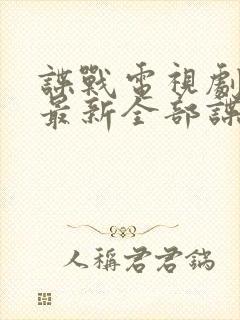 諜戰電視劇
最新全部諜
人稱君君鎬